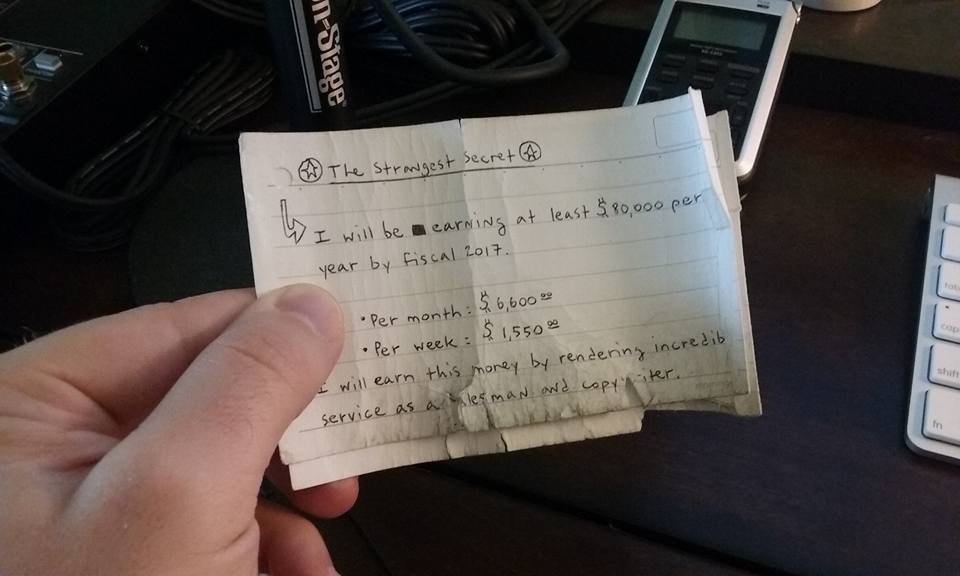 On-Stage
The Strangest Secret
I will be earning at least $80,000 per
year by fiscal 2017.
• Per month: $6,600 00
• Per week: $1,550 00
I will earn this money by rendering incredib
service as a salesman and copy iter.
caps
shift
fn